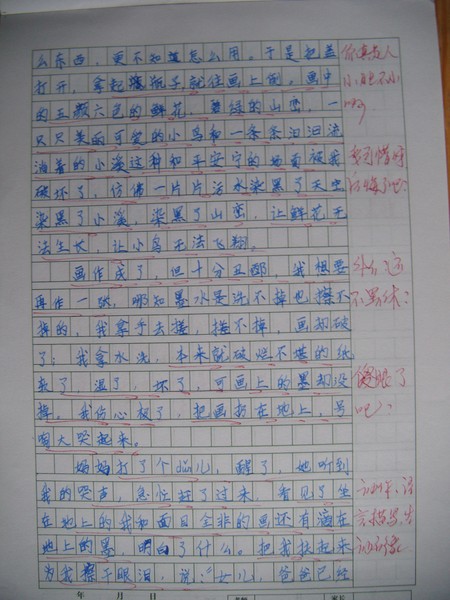 么东西，更不知道怎么用。于是把盖
打开，拿起墨瓶子就往画上倒。画中
的五颜六色的鲜花，翠绿的山峦，一
只只美丽可爱的小鸟和一条条汩汩流
淌着的小溪这种和平安宁的场面被我
破坏了，仿佛一片片污水染黑了天空
染黑了小溪，染黑了山峦，让鲜花无
法生长，让小鸟无法飞翔。
画作成了，但十分丑陋，我想要
再作一张，哪知墨水是洗不掉也擦不
掉的，我拿手去搓，搓不掉，画却破
了；我拿水洗，本来就破烂不堪的纸
湿了，坏了，可画上的墨却没
掉。我伤心极了，把画扔在地上，号
啕大哭起来。
妈妈打了个盹儿，醒了，她听到
我的哭声，急忙赶了过来，看见了坐
在地上的我和面目全非的画还有滴在
地上的墨，明白了什么。把我扶起来
为我擦干眼泪，说：“女儿，爸爸已经
你真是人
小胆不小
啊
年 月 日